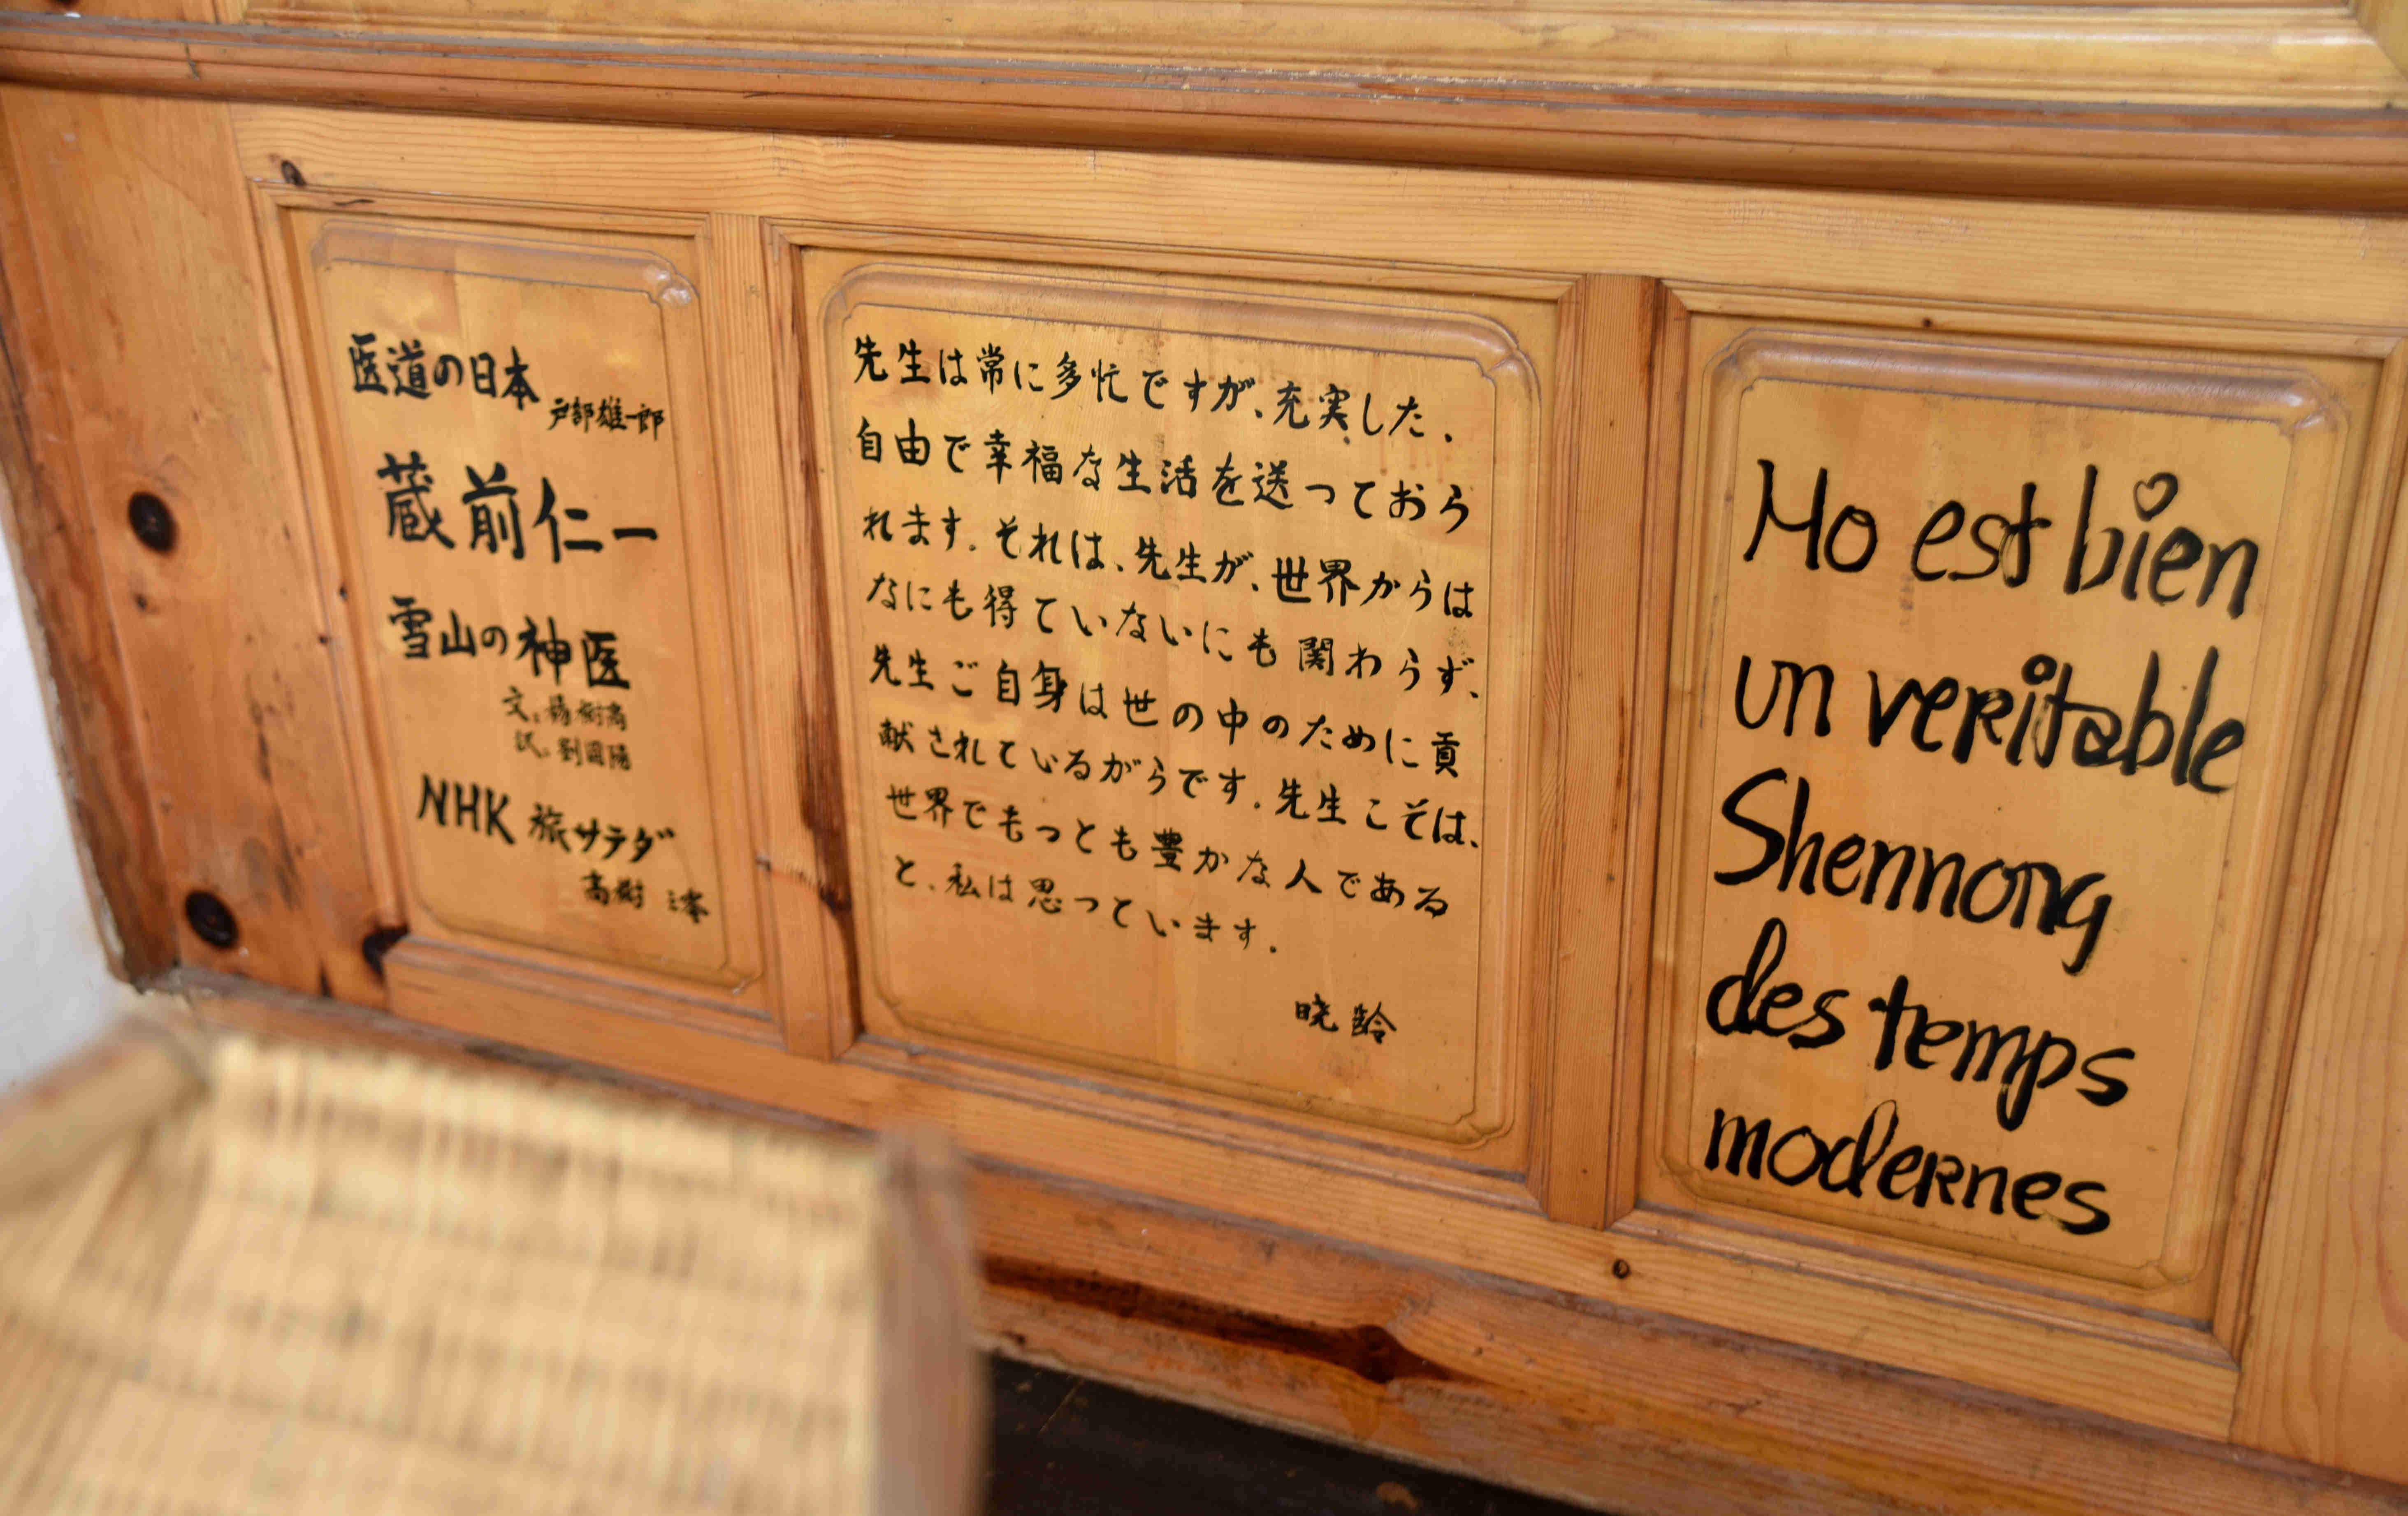 医道の日本
戸部雄一郎
蔵前仁一
雪山の神医
文:楊樹高
訳:劉国陽
NHK 旅サテダ
高樹
先生は常に多忙ですが、充実した、
自由で幸福な生活を送っておら
れます。それは、先生が、世界からは
なにも得ていないにも関わらず、
先生ご自身は世の中のために貢
献されているがらです。先生こそは、
世界でもっとも豊かな人である
と、私は思っています。
暁齢
Ho est bien
un veritable
Shennong
des temps
modernes